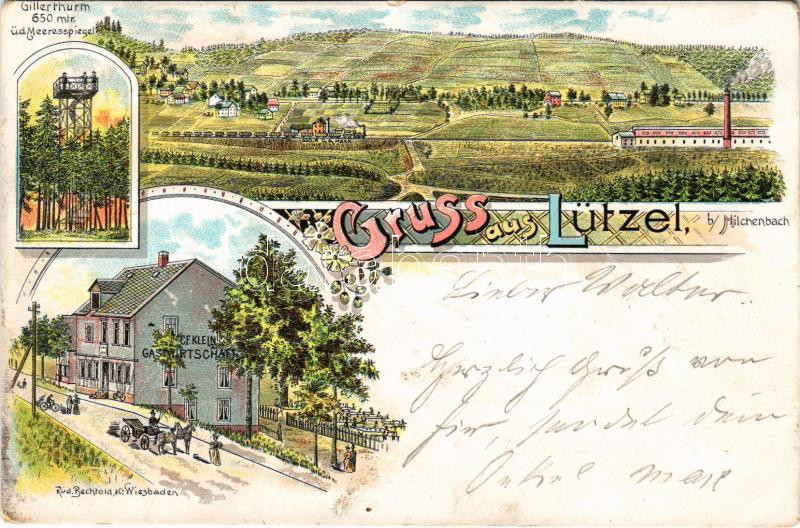 Gillerthurm
650 mtr.
ü.d. Meeresspiegel
Gruss aus Lützel, b/ Hilchenbach
C.F. KLEIN
GASTWIRTSCHAFT
Lieber Walter.
Herzlich Gruß von
hir, sendet dein
Onkel Max
Rud. Bechtold, & Co. Wiesbaden